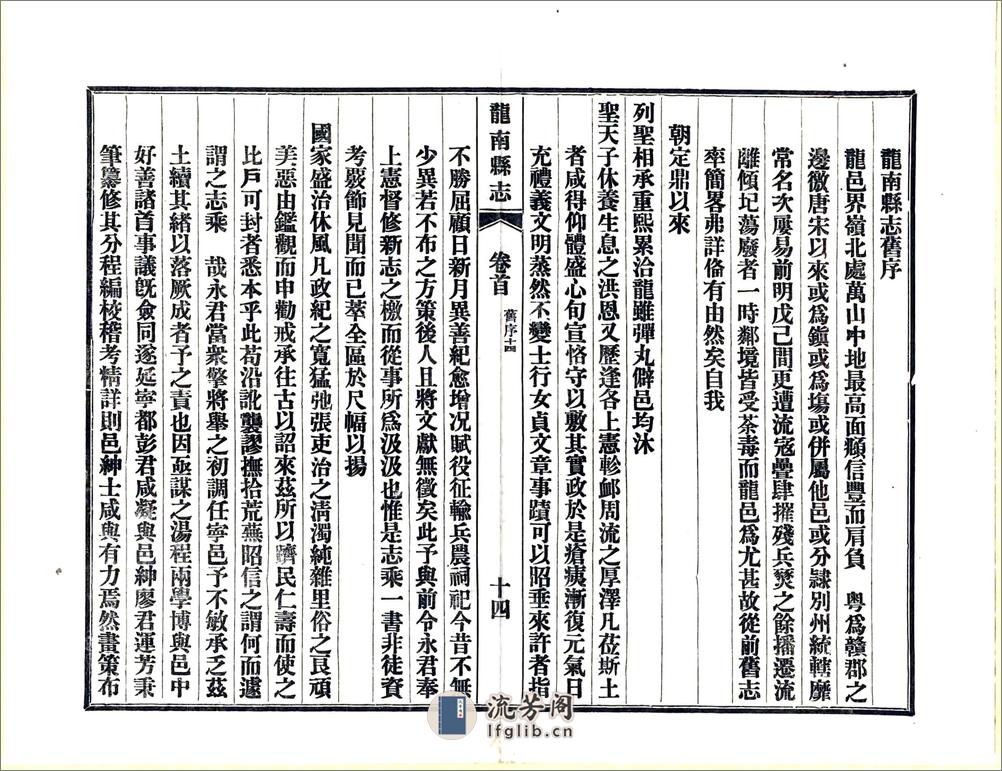 龍南縣志舊序
龍邑界嶺北處萬山中地最高面頫信豐而肩負　粤爲贛郡之
邊徼唐宋以來或爲鎭或爲塲或併屬他邑或分隷別州統轄靡
常名次屢易前明戊己間更遭流寇疊肆摧殘兵燹之餘播遷流
離傾圮蕩廢者一時鄰境皆受荼毒而龍邑爲尤甚故從前舊志
率簡畧弗詳偹有由然矣自我
朝定鼎以來
列聖相承重熙累洽龍雖彈丸僻邑均沐
聖天子休養生息之洪恩又歷逢各上憲軫卹周流之厚澤凡莅斯土
者咸得仰體盛心旬宣恪守以敷其實政於是瘡痍漸復元氣日
充禮義文明蒸然不變士行女貞文章事蹟可以昭垂來許者指
龍南縣志
卷首
舊序十四
十四
不勝屈顧日新月異善紀愈增况賦役征輸兵農祠祀今昔不無
少異若不布之方策後人且將文獻無徵矣此予與前令永君奉
上憲督修新志之檄而從事所爲汲汲也惟是志乘一書非徒資
考覈飾見聞而已萃全區於尺幅以揚
國家盛治休風凡政紀之寬猛弛張吏治之淸濁純雜里俗之良頑
美惡由鑑觀而申勸戒承往古以詔來茲所以躋民仁壽而使之
比戶可封者悉本乎此苟沿訛襲謬撫拾荒蕪昭信之謂何而遽
謂之志乘　哉永君當衆擎將舉之初調任寧邑予不敏承乏茲
土續其緒以落厥成者予之責也因亟謀之湯程兩學博與邑中
好善諸首事議旣僉同遂延寧都彭君咸凝與邑紳廖君運芳秉
筆纂修其分程編校稽考精詳則邑紳士咸與有力焉然畫策布
流芳阁
lfglib.cn